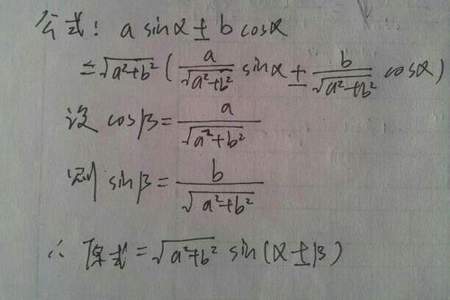 公式: a sinα ± b cosα
= √a²+b² ( a/√a²+b² sinα ± b/√a²+b² cosα)
设 cosβ = a/√a²+b²
则 sinβ = b/√a²+b²
∴ 原式 = √a²+b² sin(α±β)